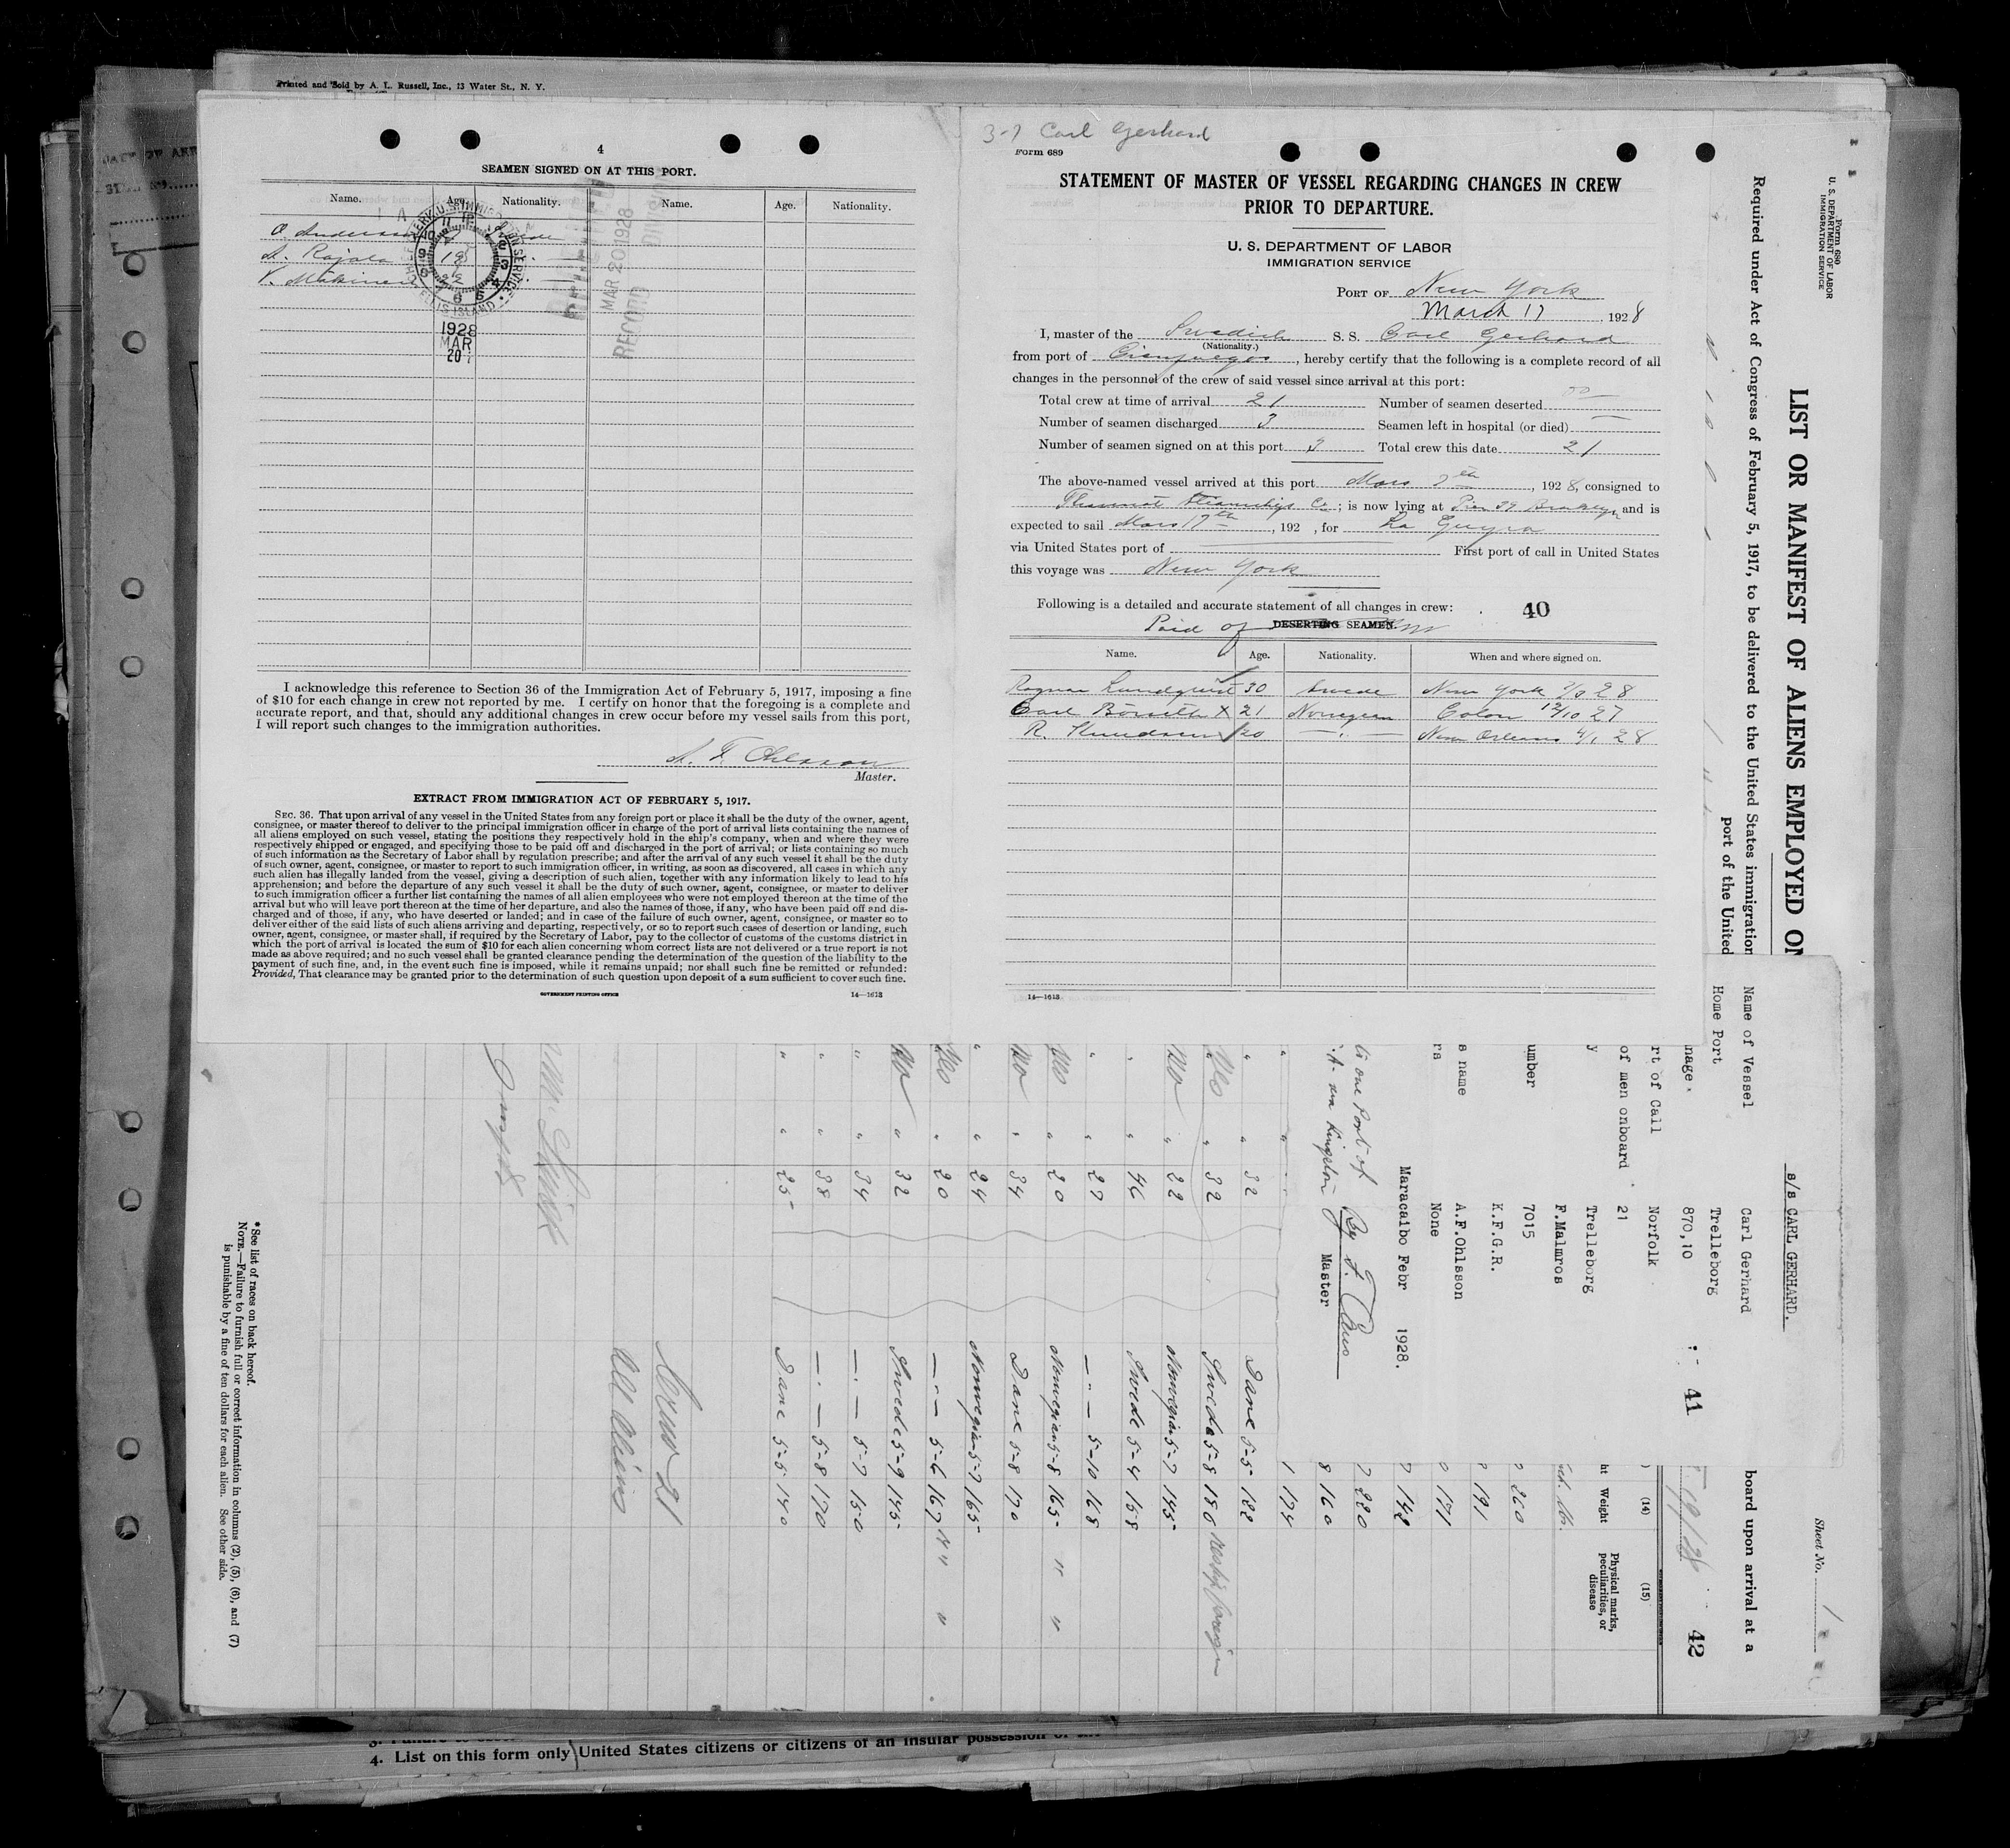 Printed and Sold by A. L. Russell, Inc., 13 Water St., N. Y.
4
SEAMEN SIGNED ON AT THIS PORT.
Name. Age. Nationality. Name. Age. Nationality.
O. Andersson
A. Rajala 18
V. Makinen 22
U. S. IMMIGRATION SERVICE
ELLIS ISLAND
1928
MAR
20
MAR 20 1928
RECORD DIVISION
I acknowledge this reference to Section 36 of the Immigration Act of February 5, 1917, imposing a fine
of $10 for each change in crew not reported by me. I certify on honor that the foregoing is a complete and
accurate report, and that, should any additional changes in crew occur before my vessel sails from this port,
I will report such changes to the immigration authorities.
A. F. Ohlsson
Master.
EXTRACT FROM IMMIGRATION ACT OF FEBRUARY 5, 1917.
SEC. 36. That upon arrival of any vessel in the United States from any foreign port or place it shall be the duty of the owner, agent,
consignee, or master thereof to deliver to the principal immigration officer in charge of the port of arrival lists containing the names of
all aliens employed on such vessel, stating the positions they respectively hold in the ship's company, when and where they were
respectively shipped or engaged, and specifying those to be paid off and discharged in the port of arrival; or lists containing so much
of such information as the Secretary of Labor shall by regulation prescribe; and after the arrival of any such vessel it shall be the duty
of such owner, agent, consignee, or master to report to such immigration officer, in writing, as soon as discovered, all cases in which any
such alien has illegally landed from the vessel, giving a description of such alien, together with any information likely to lead to his
apprehension; and before the departure of any such vessel it shall be the duty of such owner, agent, consignee, or master to deliver
to such immigration officer a further list containing the names of all alien employees who were not employed thereon at the time of the
arrival but who will leave port thereon at the time of her departure, and also the names of those, if any, who have been paid off and dis-
charged and of those, if any, who have deserted or landed; and in case of the failure of such owner, agent, consignee, or master so to
deliver either of the said lists of such aliens arriving and departing, respectively, or so to report such cases of desertion or landing, such
owner, agent, consignee, or master shall, if required by the Secretary of Labor, pay to the collector of customs of the customs district in
which the port of arrival is located the sum of $10 for each alien concerning whom correct lists are not delivered or a true report is not
made as above required; and no such vessel shall be granted clearance pending the determination of the question of the liability to the
payment of such fine, and, in the event such fine is imposed, while it remains unpaid; nor shall such fine be remitted or refunded:
Provided, That clearance may be granted prior to the determination of such question upon deposit of a sum sufficient to cover such fine.
GOVERNMENT PRINTING OFFICE 14—1613
3-7 Carl Gerhard
Form 689
STATEMENT OF MASTER OF VESSEL REGARDING CHANGES IN CREW
PRIOR TO DEPARTURE.
U. S. DEPARTMENT OF LABOR
IMMIGRATION SERVICE
PORT OF New York
March 17, 1928
I, master of the Swedish S. S. Carl Gerhard
(Nationality.)
from port of Cienfuegos, hereby certify that the following is a complete record of all
changes in the personnel of the crew of said vessel since arrival at this port:
Total crew at time of arrival 21 Number of seamen deserted
Number of seamen discharged 3 Seamen left in hospital (or died) —
Number of seamen signed on at this port 3 Total crew this date 21
The above-named vessel arrived at this port Mars 7th, 1928, consigned to
Steamship Co; is now lying at Pier 39 Brooklyn and is
expected to sail Mars 17th, 192 , for La Guyra
via United States port of First port of call in United States
this voyage was New York
Following is a detailed and accurate statement of all changes in crew: 40
Paid of DESERTING SEAMEN.
Name. Age. Nationality. When and where signed on.
Ragnar Lundquist 30 Swede New York 28
Carl x 21 Norwegian Colon 12/10 27
R. 20 —"— New Orleans 4/1 28
14—1613
Form 680
U. S. DEPARTMENT OF LABOR
IMMIGRATION SERVICE
LIST OR MANIFEST OF ALIENS EMPLOYED ON
Required under Act of Congress of February 5, 1917, to be delivered to the United States immigration
port of the United
Sheet No. 1
board upon arrival at a
41
42
s/s CARL GERHARD.
Name of Vessel Carl Gerhard
Home Port Trelleborg
nage 870,10
rt of Call Norfolk
of men onboard 21
y Trelleborg
F.Malmros
umber 7015
K.F.G.R.
s name A.F.Ohlsson
rs None
Maracaibo Febr 1928.
Master
(14) (15)
ht Weight Physical marks, peculiarities, or disease
260
191
171
7 142
7 220
8 160
1 174
" " 32 Dane 5-5 122
" 32 Swede 5-8 180
No " 22 Norwegian 5-7 145
" " 46 Swede 5-4 158
" " 27 —"— 5-10 168
" 20 Norwegian 5-8 165 " "
No " 34 Dane 5-8 170
" " 24 Norwegian 5-7 165
" 20 —"— 5-6 167 " "
No " 32 Swede 5-9 145
" " 34 —"— 5-7 150
" " 38 —"— 5-8 170
" " 25 Dane 5-5 140
Crew 21
All Aliens
*See list of races on back hereof.
NOTE.—Failure to furnish full or correct information in columns (2), (5), (6), and (7)
is punishable by a fine of ten dollars for each alien. See other side.
4. List on this form only United States citizens or citizens of an insular possession of